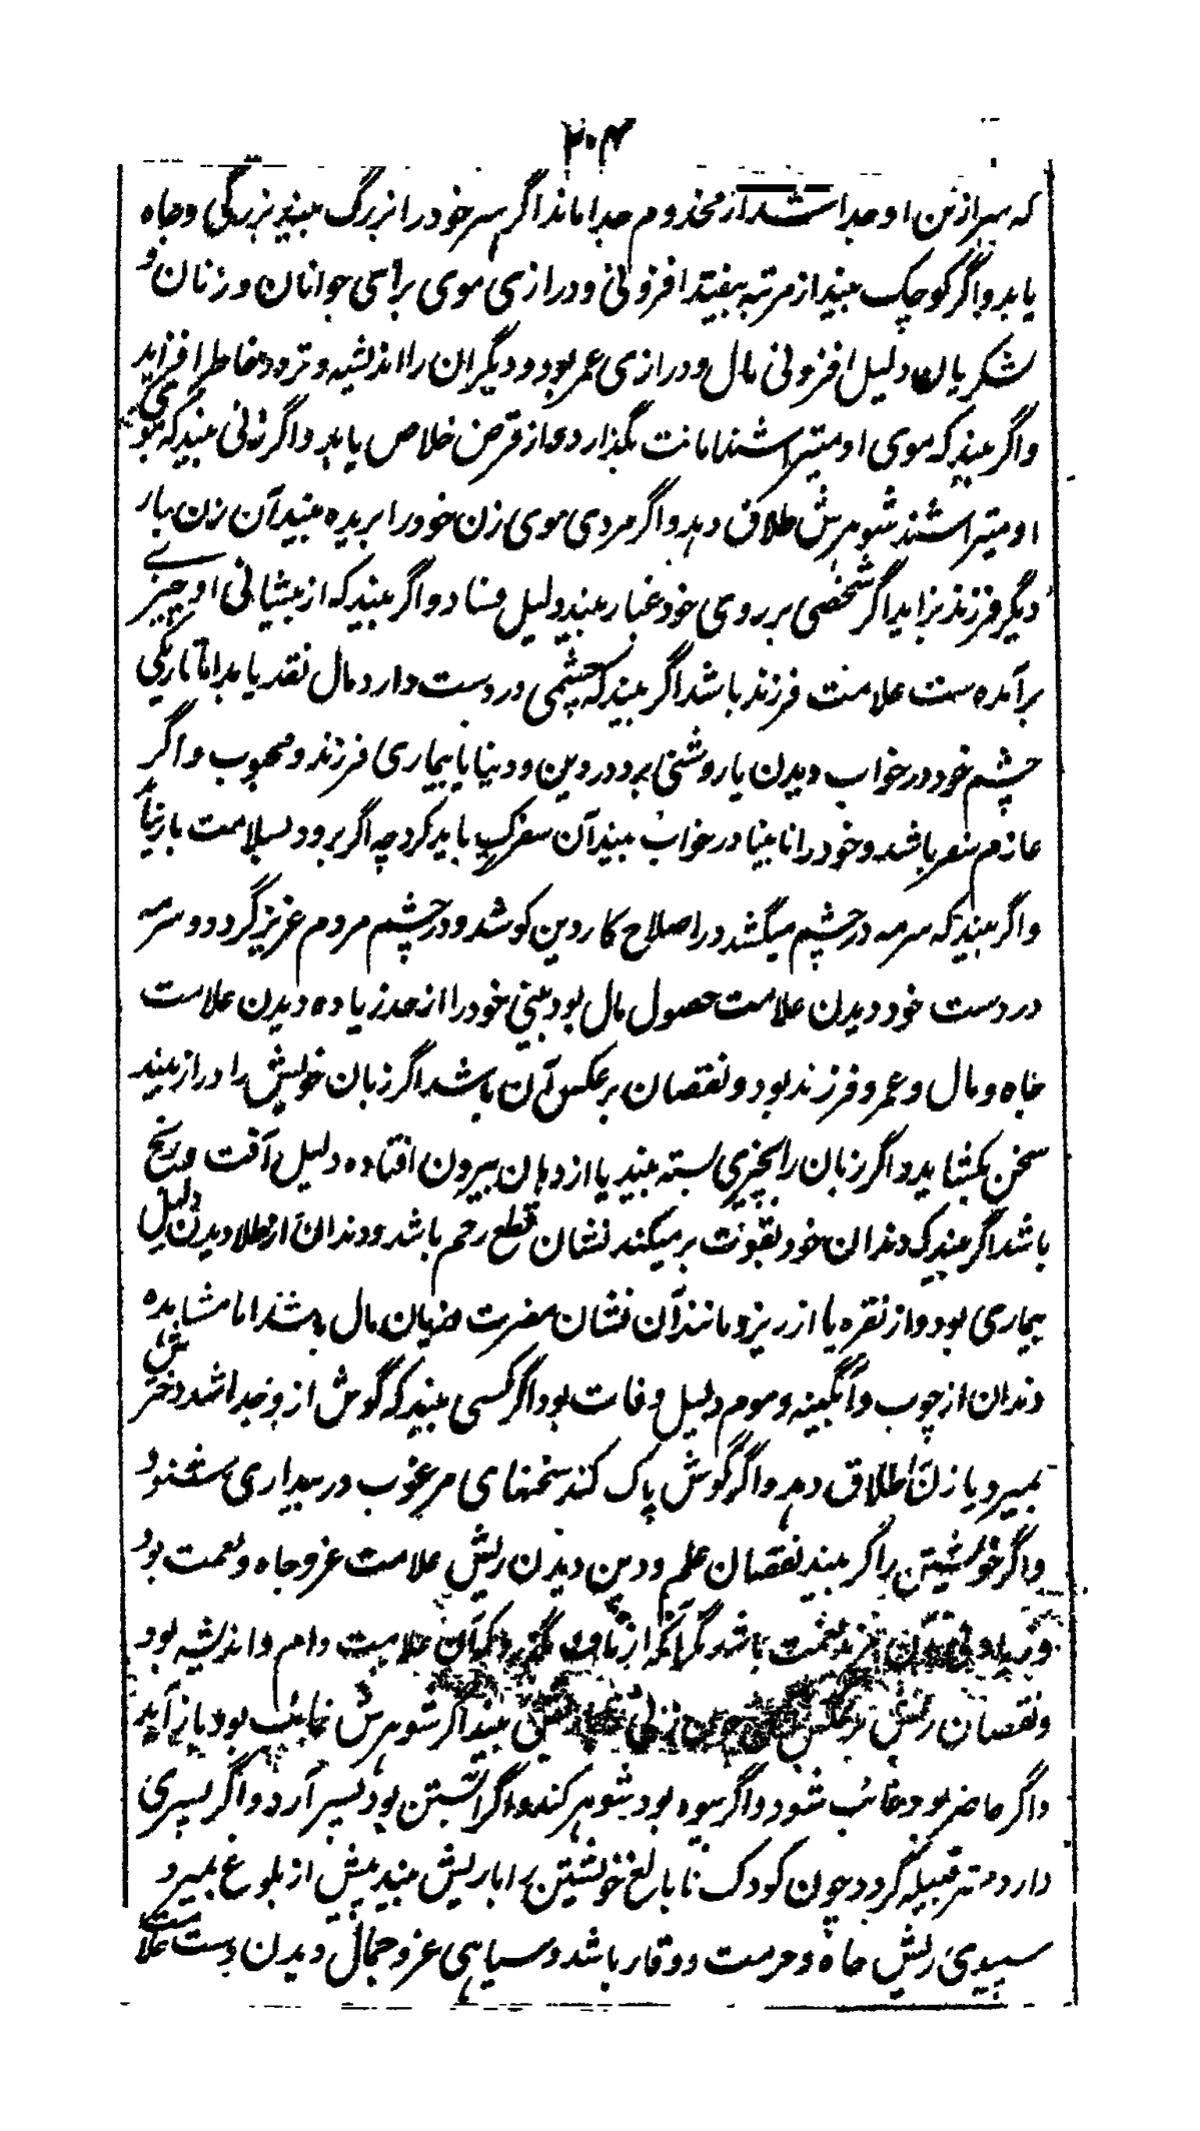 ۲۰۴
که سر از تن او جدا شد از مخدوم جدا ماند اگر سر خود را بزرگ بیند بزرگی و جاه
یابد و اگر کوچک بیند از مرتبه بیفتد افزونی و درازی موی برای جوانان و زنان و
لشکریان دلیل افزونی مال و درازی عمر بود و دیگران را اندیشه و تردد خاطر افزاید
و اگر بیند که موی او میتراشند امانت بگذارد و از قرض خلاص یابد و اگر زنی بیند که موی
او میتراشند شوهرش طلاق دهد و اگر مردی موی زن خود را بریده بیند آن زن بار
دیگر فرزند نزاید اگر شخصی بر روی خود غبار بیند دلیل فساد و اگر بیند که از پیشانی او چیزے
برآمده ست علامت فرزند باشد اگر بیند که چشمی در دست دارد مال نقد یابد اما تاریکی
چشم خود در خواب دیدن یا روشنی برد در دین و دنیا یا بیماری فرزند و محبوب و اگر
عازم سفر باشد و خود را نابینا در خواب بیند آن سفر باید کرد چه اگر برود بسلامت باز نیاید
و اگر بیند که سرمه در چشم میکشد در اصلاح کار دین کوشد و در چشم مردم عزیز گردد و سرمه
در دست خود دیدن علامت حصول مال بود بینی خود را از حد زیاده دیدن علامت
جاه و مال و عمر و فرزند بود و نقصان بر عکس آن باشد اگر زبان خویش را دراز بیند
سخن بکشاید و اگر زبان را بچیزی بسته بیند یا از دهان بیرون افتاده دلیل آفت و رنج
باشد اگر بیند که دندان خود بقوت بر میکند نشان قطع رحم باشد و دندان از طلا دیدن دلیل
بیماری بود و از نقره یا ارزیز و مانند آن نشان مضرت و زیان مال باشد اما مشاهده
دندان از چوب و آبگینه و موم دلیل وفات بود اگر کسی بیند که گوش از و جدا شد دخترش
بمیرد یا زن را طلاق دهد و اگر گوش پاک کند سخنهای مرغوب در بیداری شنود
و اگر خویشتن را کر بیند نقصان علم و دین دیدن ریش علامت عز و جاه و نعمت بود
و زیادتی آن نعمت باشد مگر آنکه از ناف بگذرد که آن علامت دام و اندیشه بود
و نقصان ریش بر عکس آن چون زنی بیند اگر شوهرش غائب بود باز آید
و اگر حاضر بود غائب شود و اگر بیوه بود شوهر کند و اگر آبستن بود پسر آرد و اگر پسری
دارد مهتر قبیله گردد چون کودک نا بالغ خویشتن را با ریش بیند پیش از بلوغ بمیرد
سپیدی ریش جاه و حرمت و وقار باشد و سیاهی عز و جمال دیدن دست علامت